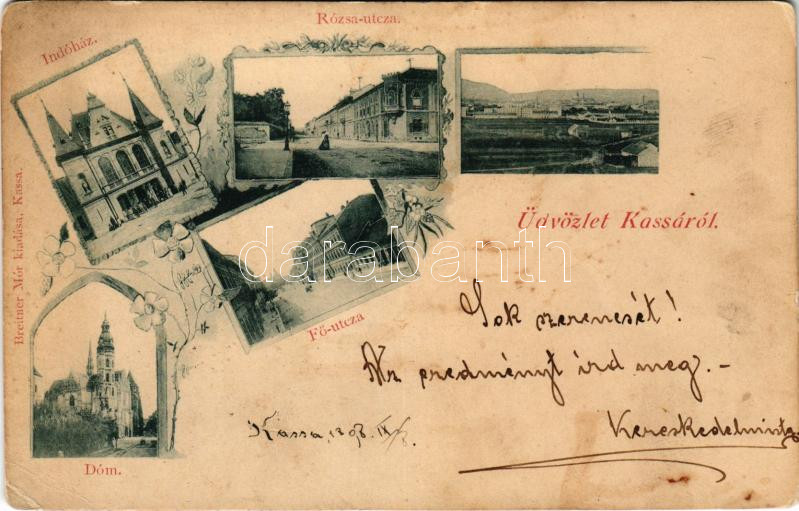 Rózsa-utcza.
Indóház.
Üdvözlet Kassáról.
Breitner Mór kiadása, Kassa.
Fő-utcza
Dóm.
darabanth
Sok szerencsét!
Az eredményt ird meg. -
Kassa, 1898. IX/8.